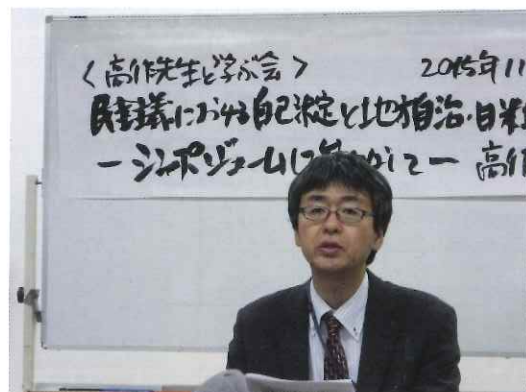 〈高作先生と学ぶ会〉 2015年11
民主主義における自己決定と地方自治・日米
ーシンポジュームに 高作